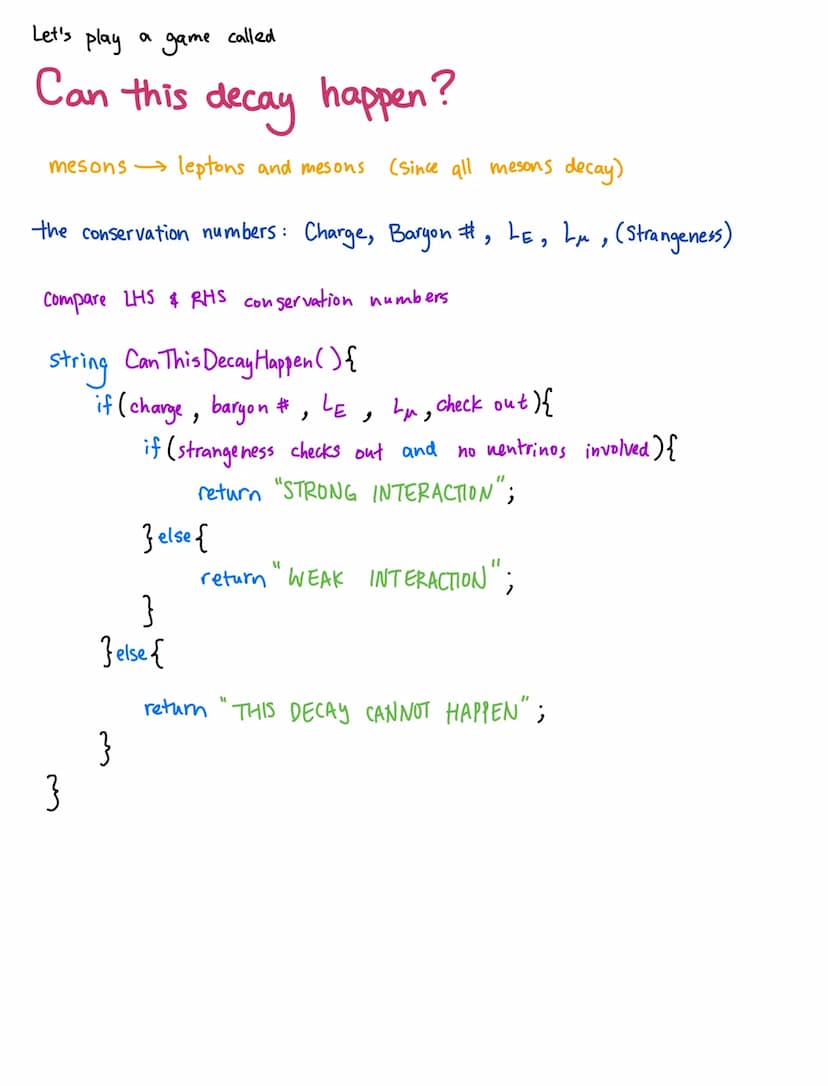 Let's play a game called
Can this decay happen?
mesons → leptons and mesons (since all mesons decay)
the conservation numbers: Charge, Baryon #, LE, Lμ, (Strangeness)
Compare LHS & RHS conservation numbers
string CanThisDecayHappen(){
if(charge, baryon #, LE, Lμ, check out){
if(strangeness checks out and no neutrinos involved){
return "STRONG INTERACTION";
}else{
return "WEAK INTERACTION";
}
}else{
return "THIS DECAY CANNOT HAPPEN";
}
}